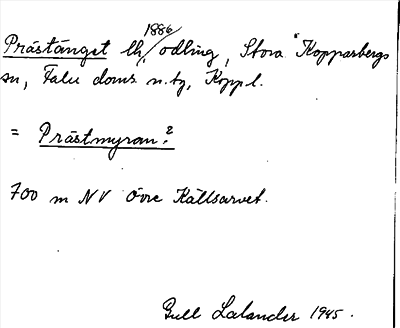 1886
Prästänget lh, odling, Stora Kopparbergs
sn, Falu doms. n. tg, Koppl.
= Prästmyran?
700 m NV Övre Källsarvet.
Lalander 1945.